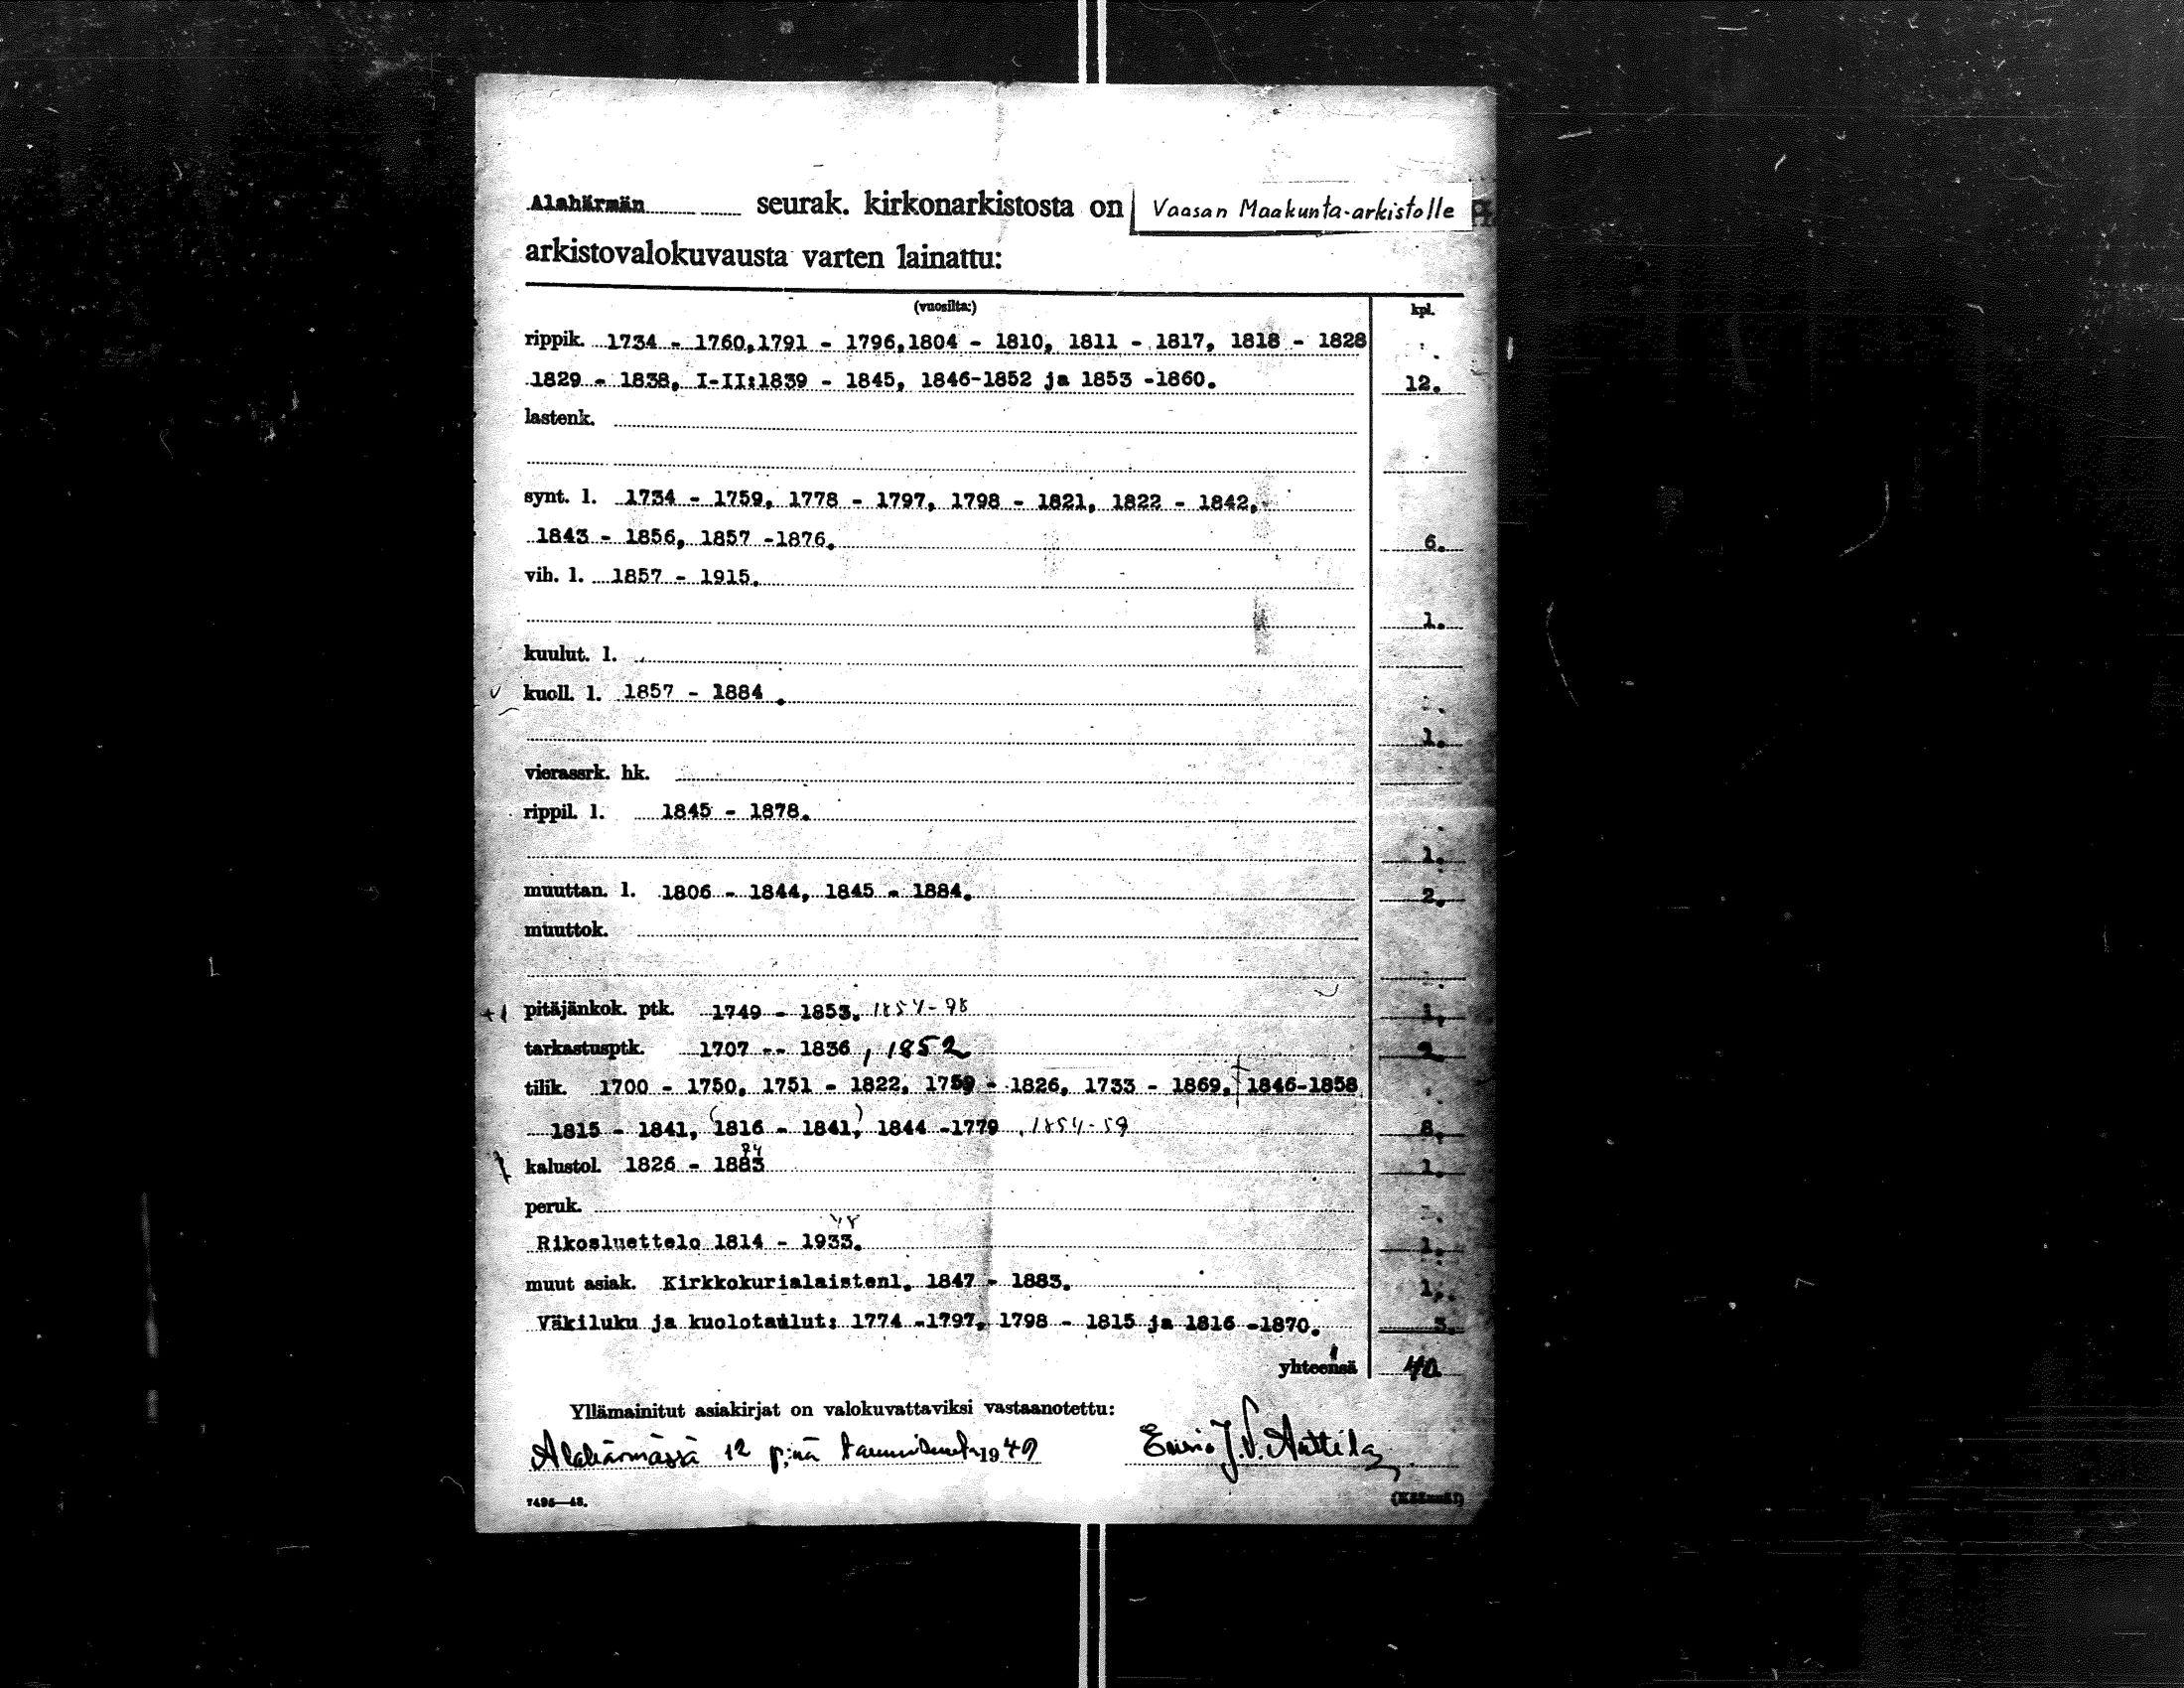 Alahärmän seurak. kirkonarkistosta on Vaasan Maakunta-arkistolle
arkistovalokuvausta varten lainattu:
(vuosilta:) kpl.
rippik. 1734 - 1760, 1791 - 1796, 1804 - 1810, 1811 - 1817, 1818 - 1828
1829 - 1838, I-II:1839 - 1845, 1846-1852 ja 1853 -1860. 12.
lastenk.
synt. l. 1734 - 1759, 1778 - 1797, 1798 - 1821, 1822 - 1842,
1843 - 1856, 1857 -1876. 6.
vih. l. 1857 - 1915.
1.
kuulut. l.
kuoll. l. 1857 - 1884.
1.
vierassrk. hk.
rippil. l. 1845 - 1878.
1.
muuttan. l. 1806 - 1844, 1845 - 1884. 2.
muuttok.
+1 pitäjänkok. ptk. 1749 - 1853. 1854-98 1.
tarkastusptk. 1707 -- 1836, 1852 2.
tilik. 1700 - 1750, 1751 - 1822, 1759 - 1826, 1733 - 1869, 1846-1858
1815 - 1841, (1816 - 1841,) 1844 -1779, 1854-59 8.
kalustol. 1826 - 1883 84 1.
peruk.
Rikosluettelo 1814 - 1933. 1.
muut asiak. Kirkkokurialaistenl. 1847 - 1883. 1.
Väkiluku ja kuolotaulut: 1774 -1797, 1798 - 1815 ja 1816 -1870. 3.
yhteensä 40
Yllämainitut asiakirjat on valokuvattaviksi vastaanotettu:
Alahärmässä 12 p:nä 1949 J.V. Anttila
7495—48.